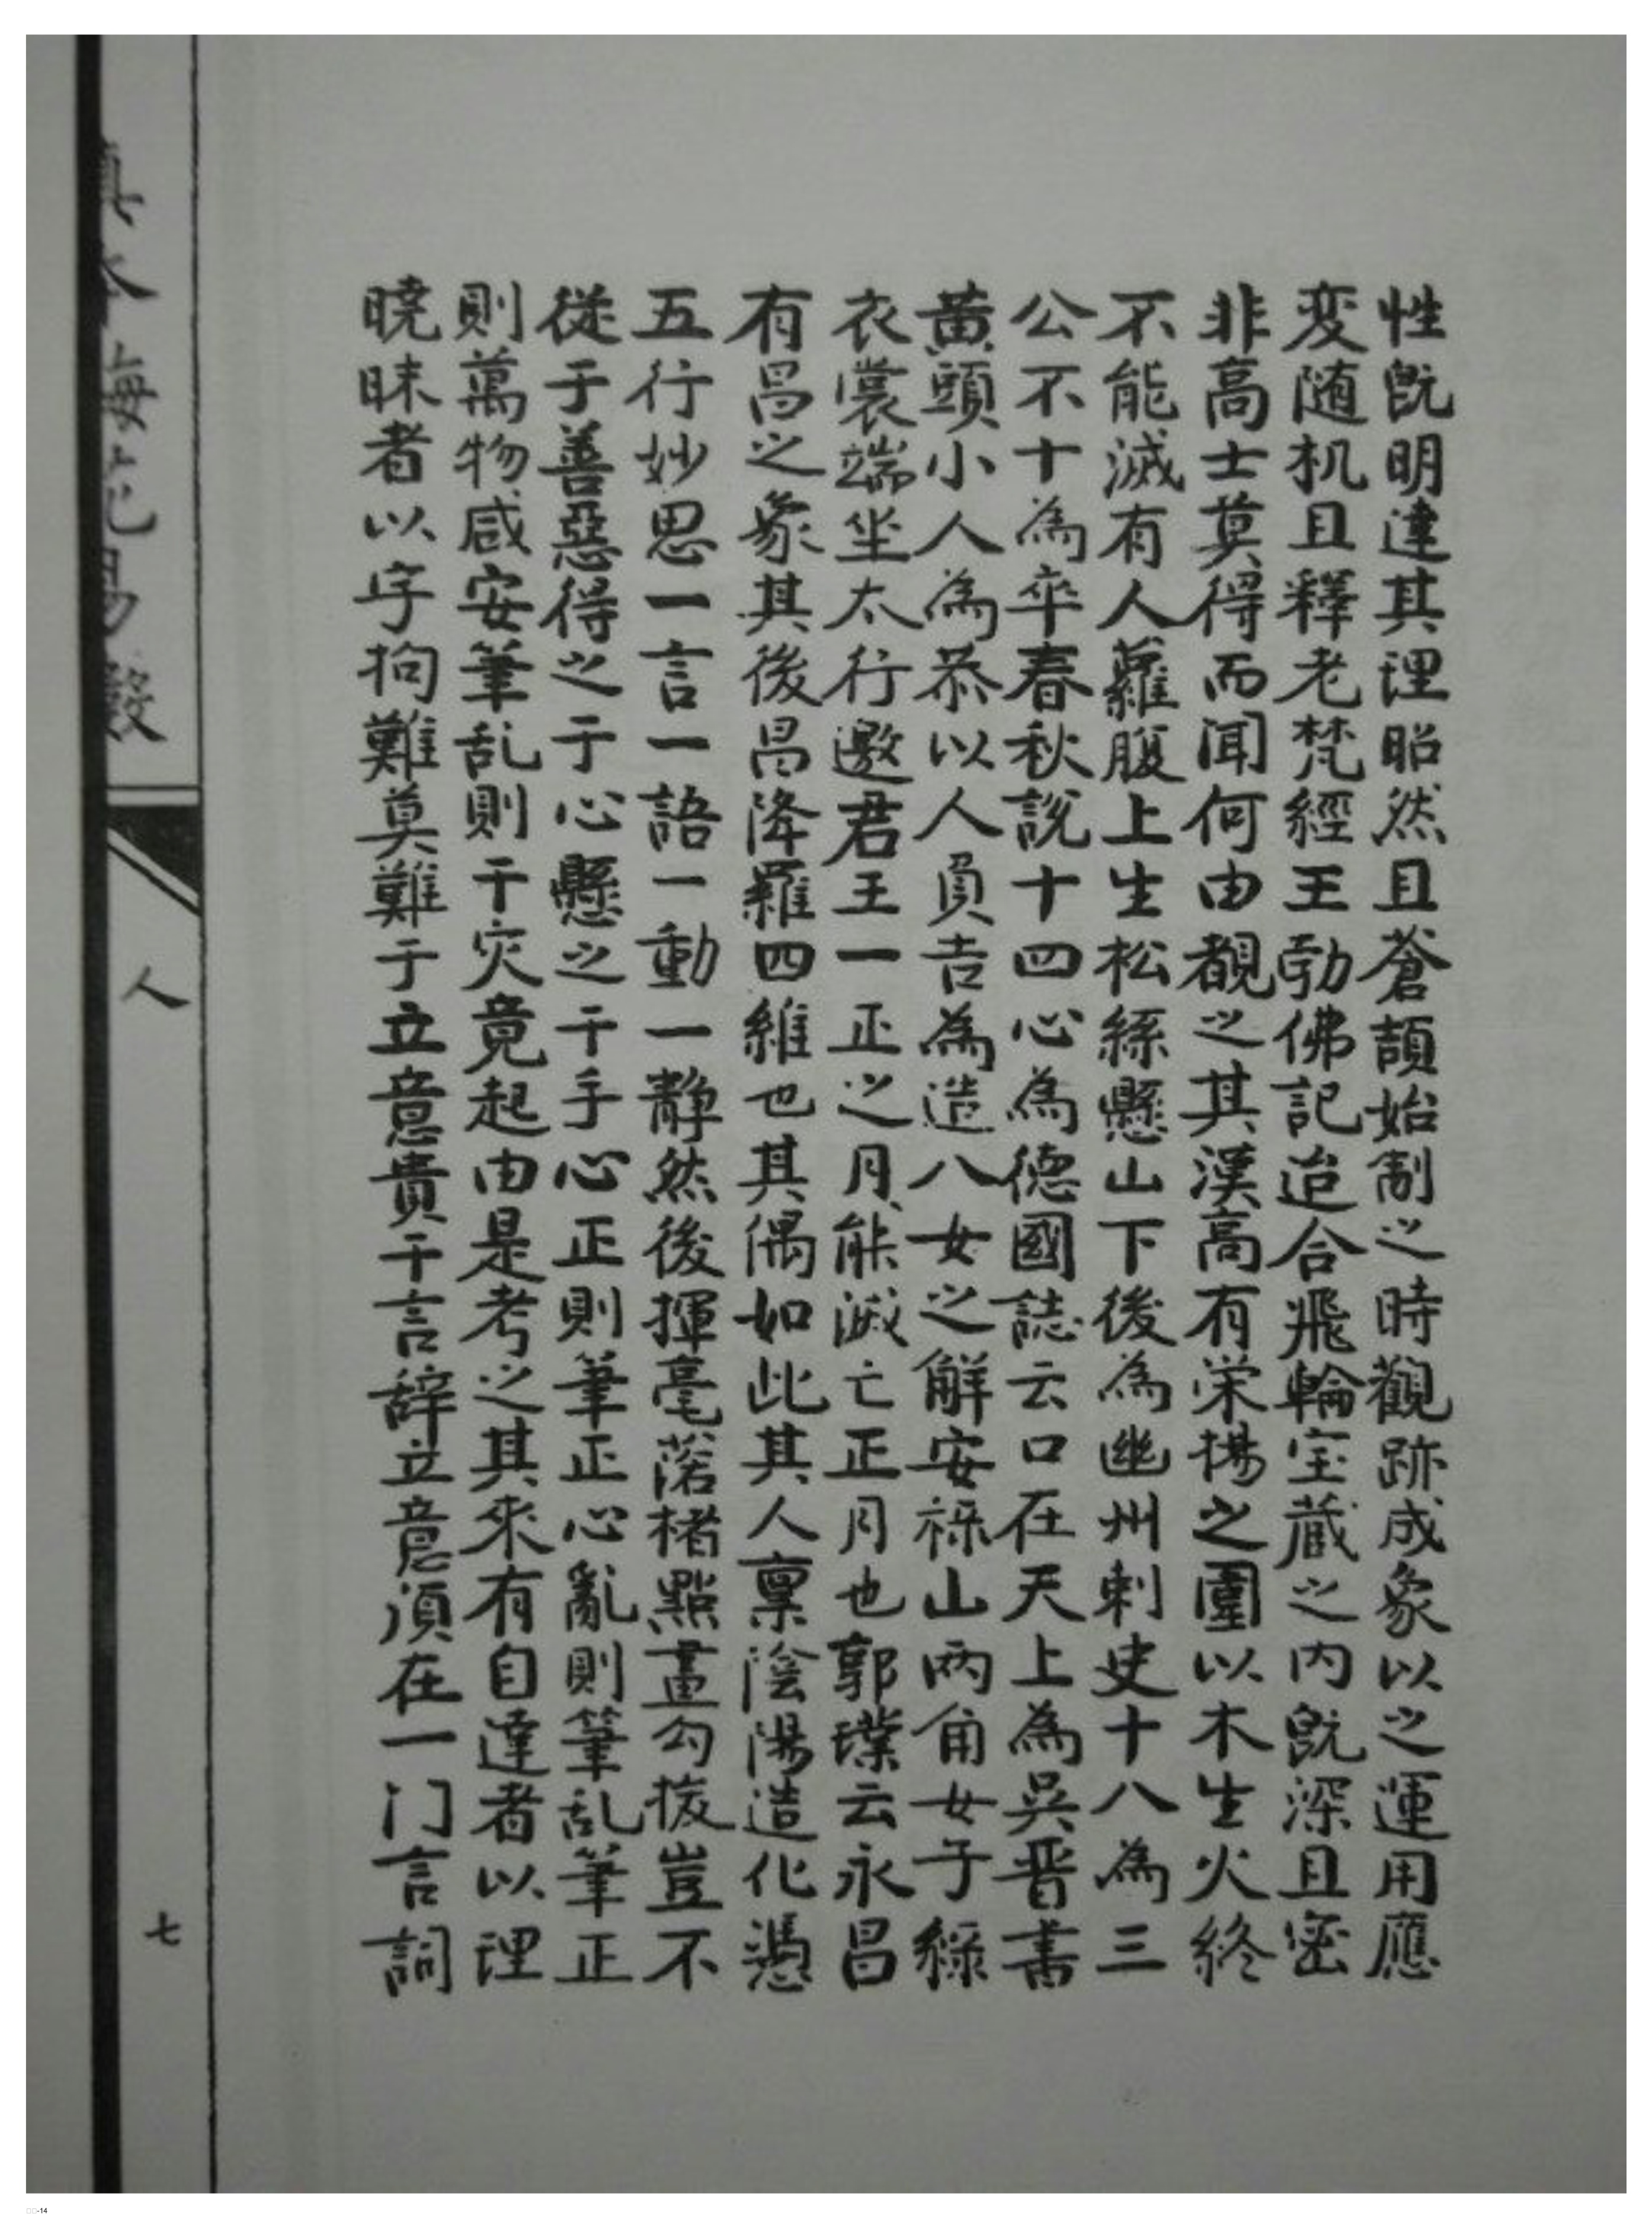 性既明達其理昭然且蒼頡始制之時觀跡成象以之運用應
変随机且釋老梵經王勃佛記迨合飛輪宝蔵之内既深且密
非高士莫得而聞何由覩之其漢高有栄楊之圍以木生火終
不能滅有人蘿腹上生松絲懸山下後為幽州刺史十八為三
公不十為卒春秋說十四心為德國誌云口在天上為吳晋書
黄頭小人為恭以人負吉為造八女之解安祿山两角女子綠
衣裳端坐太行邀君王一正之月能滅亡正月也郭璞云永昌
有昌之象其後昌降羅四維也其偶如此其人稟陰陽造化憑
五行妙思一言一語一動一靜然後揮毫落楮點畫勾拔豈不
従于善惡得之于心懸之于手心正則筆正心亂則筆乱筆正
則萬物咸安筆乱則干灾竟起由是考之其來有自達者以理
曉昧者以字拘難莫難于立意貴于言辞立意須在一门言詞
梅花易数
人
七
-14